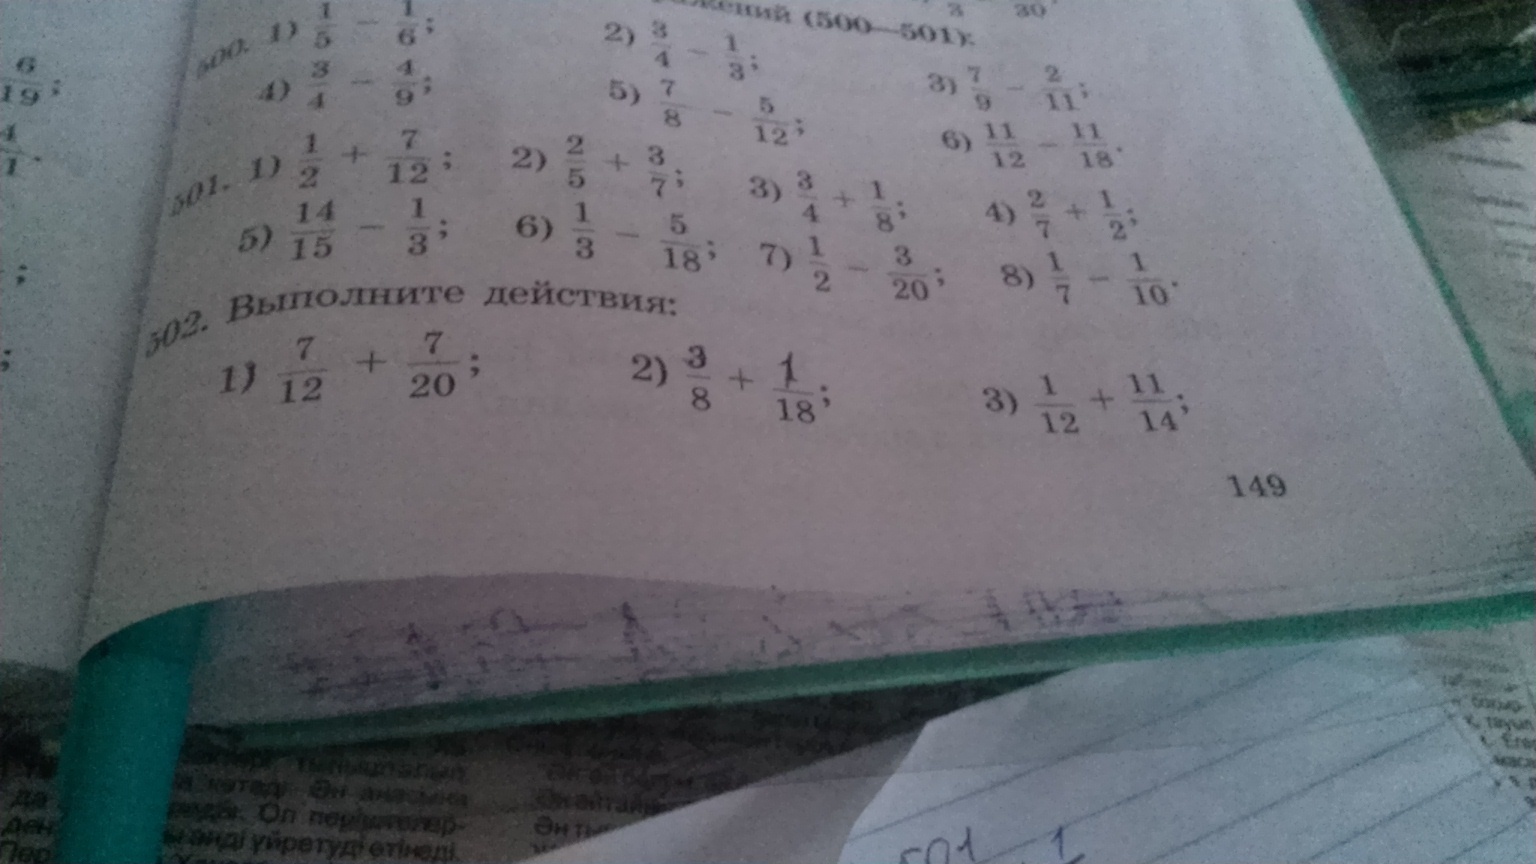 6/19;
3 30
(500—501):
500. 1) 1/5 − 1/6; 2) 3/4 − 1/3; 3) 7/9 − 2/11;
4) 3/4 − 4/9; 5) 7/8 − 5/12; 6) 11/12 − 11/18.
501. 1) 1/2 + 7/12; 2) 2/5 + 3/7; 3) 3/4 + 1/8; 4) 2/7 + 1/2;
5) 14/15 − 1/3; 6) 1/3 − 5/18; 7) 1/2 − 3/20; 8) 1/7 − 1/10.
502. Выполните действия:
1) 7/12 + 7/20; 2) 3/8 + 1/18; 3) 1/12 + 11/14;
149
501 1